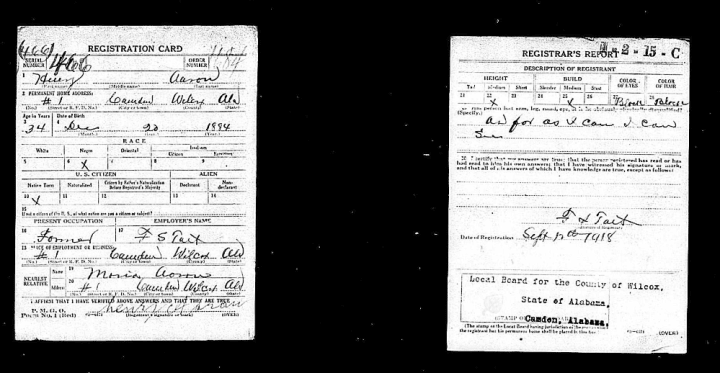 (466)
REGISTRATION CARD
SERIAL NUMBER 466 ORDER NUMBER
1 Henry Aaron
(First name) (Middle name) (Last name)
2 PERMANENT HOME ADDRESS:
#1 Camden Wilcox Ala
(No.) (Street or R. F. D. No.) (City or town) (County) (State)
Age in Years Date of Birth
34 Dec 20 1884
(Month.) (Day.) (Year.)
RACE
White Negro Oriental Indian
Citizen Noncitizen
5 6 X 7 8 9
U. S. CITIZEN ALIEN
Native Born Naturalized Citizen by Father's Naturalization Before Registrant's Majority Declarant Non-declarant
10 X 11 12 13 14
15
If not a citizen of the U. S., of what nation are you a citizen or subject?
PRESENT OCCUPATION EMPLOYER'S NAME
16 Farmer 17 F S Tait
18 PLACE OF EMPLOYMENT OR BUSINESS:
#1 Camden Wilcox Ala
(No.) (Street or R. F. D. No.) (City or town) (County) (State)
NEAREST RELATIVE Name 19 Aaron
Address 20 #1 Camden Wilcox Ala
(No.) (Street or R. F. D. No.) (City or town) (County) (State)
I AFFIRM THAT I HAVE VERIFIED ABOVE ANSWERS AND THAT THEY ARE TRUE
P. M. G. O.
Form No. 1 (Red) Henry Aaron
(Registrant's signature or mark) (OVER)
1-2-15-C
REGISTRAR'S REPORT
DESCRIPTION OF REGISTRANT
HEIGHT BUILD COLOR OF EYES COLOR OF HAIR
Tall Medium Short Slender Medium Stout
21 22 X 23 24 25 X 26 27 Black 28 Black
29 Has person lost arm, leg, hand, eye, or is he obviously physically disqualified?
(Specify.)
as far as I can I can
See
30 I certify that my answers are true; that the person registered has read or has
had read to him his own answers; that I have witnessed his signature or mark,
and that all of his answers of which I have knowledge are true, except as follows:
F S Tait
(Signature of Registrar)
Date of Registration Sept 12th 1918
Local Board for the County of Wilcox,
State of Alabama,
Camden, Alabama.
(STAMP OF LOCAL BOARD)
(The stamp of the Local Board having jurisdiction of the area in which
the registrant has his permanent home shall be placed in this box.) (OVER)